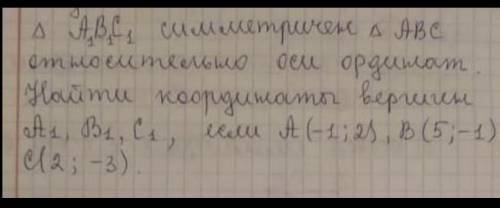 Δ A₁B₁C₁ симметричен Δ ABC
относительно оси ординат.
Найти координаты вершин
A₁, B₁, C₁, если A(-1;2), B(5;-1)
C(2; -3).